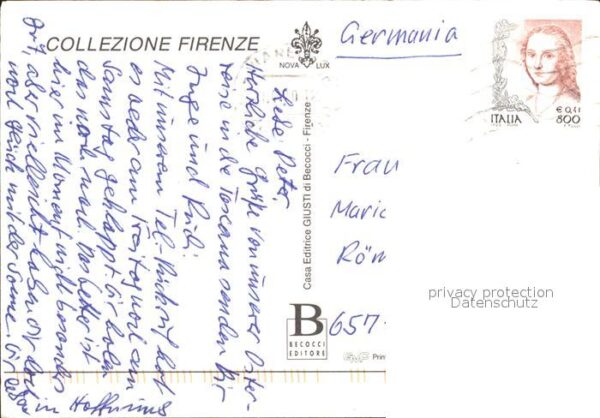 COLLEZIONE FIRENZE
NOVA LUX
Germania
ITALIA
€ 0,41
800
Liebe Peter,
Herzliche Grüße von unserer Oster-
reise in die Toscana senden Dir
Inge und
Mit unserem Tel.-Rückruf hat
es weder am Freitag noch am
Samstag geklappt. Wir holen
das noch nach. Das Wetter ist
hier im Moment nicht besonders
gut, aber vielleicht haben wir doch
noch Glück mit der Sonne. Wir
in Hoffnung
Casa Editrice GIUSTI di Becocci - Firenze
B
BECOCCI
EDITORE
Frau
Maria
Röm
657
Prin
privacy protection
Datenschutz